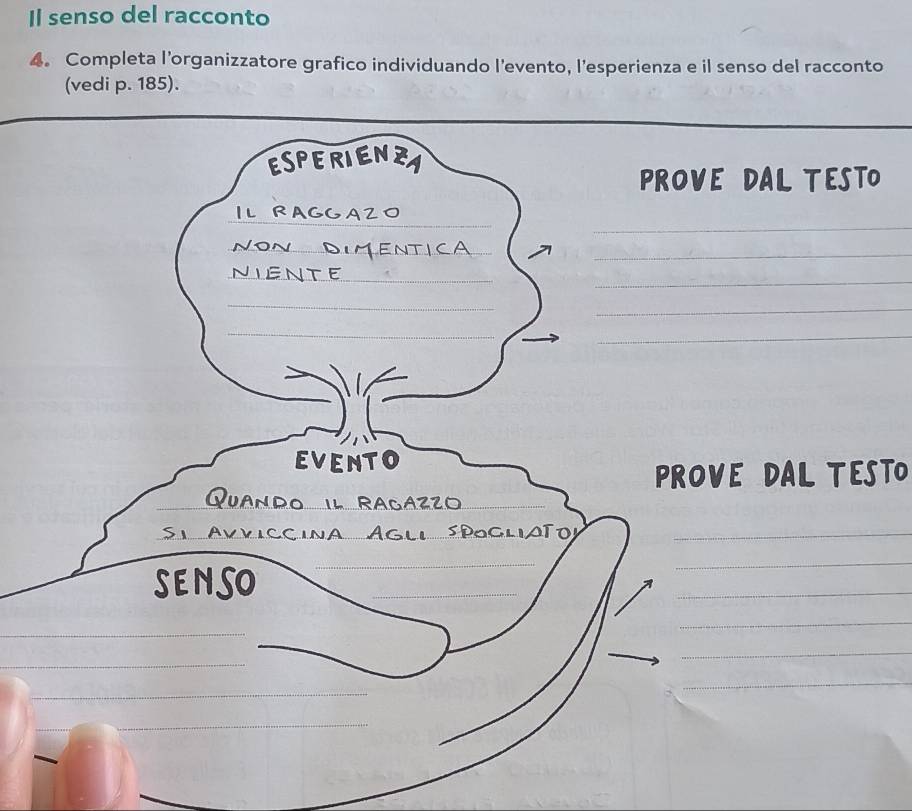 Il senso del racconto
4. Completa l'organizzatore grafico individuando l'evento, l'esperienza e il senso del racconto
(vedi p. 185).
ESPERIENZA
PROVE DAL TESTO
IL RAGGAZO
NON DIMENTICA
NIENTE
EVENTO
PROVE DAL TESTO
QUANDO IL RAGAZZO
SI AVVICCINA AGLI SPOGLIATOI
SENSO